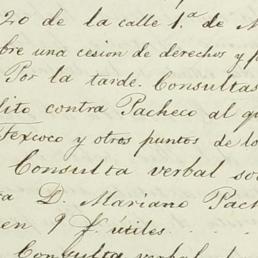 20 de la calle 1.ª de M
bre una cesion de derechos y p
Por la tarde. Consultas
lito contra Pacheco al qu
Texcoco y otros puntos de lo
Consulta verbal so
a D. Mariano Pach
en 9 f. útiles
Consulta verbal